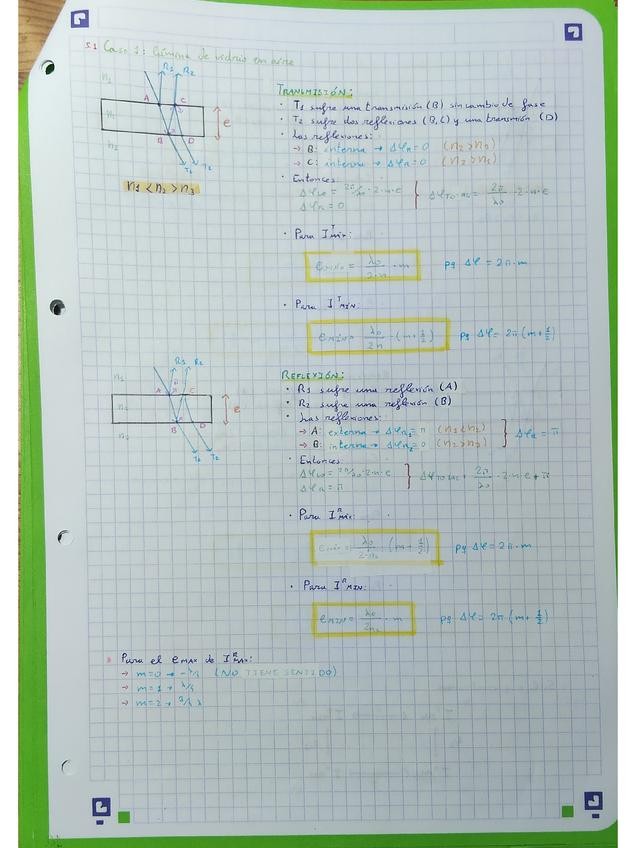 5.1 Caso 1: Lámina de vidrio en aire
R1 R2
n1
A C
n2
e
B D
T1 T2
n1 < n2 > n3
TRANSMISIÓN:
• T1 sufre una transmisión (B) sin cambio de fase
• T2 sufre dos reflexiones (B,C) y una transmisión (D)
• Las reflexiones:
→ B: interna → ΔφR = 0 (n2 > n3)
→ C: interna → ΔφR = 0 (n2 > n1)
• Entonces:
= 2π/λ0 · 2·n·e
ΔφR = 0
} ΔφTOTAL = 2π/λ0 · 2·n·e
• Para I^T MÁX:
eMÁX = λ0/2·n · m pq Δφ = 2π·m
• Para I^T MIN:
eMIN = λ0/2n · (m + 1/2) pq Δφ = 2π (m + 1/2)
R1 R2
n1
A C
e
B D
T1 T2
REFLEXIÓN:
• R1 sufre una reflexión (A)
• R2 sufre una reflexión (B)
• Las reflexiones:
→ A: externa → ΔφR1 = π (n1 < n2)
→ B: interna → ΔφR2 = 0 (n2 > n3)
} ΔφR = π
• Entonces:
= 2π/λ0 · 2·n·e
ΔφR = π
} ΔφTOTAL = 2π/λ0 · 2·n·e + π
• Para I^R MÁX:
eMÁX = λ0/2·n2 (m + 1/2) pq Δφ = 2π·m
• Para I^R MIN:
eMIN = λ0/2n2 · m pq Δφ = 2π (m + 1/2)
Para el eMAX de I^R MAX:
→ m=0 → (NO TIENE SENTIDO)
→ m=1 →
→ m=2 →